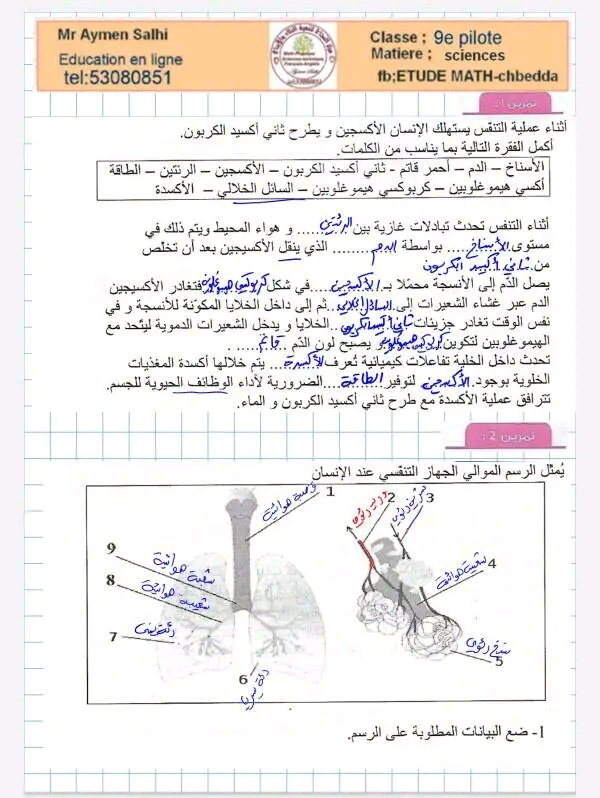 Mr Aymen Salhi
Education en ligne
tel:53080851
Classe ; 9e pilote
Matiere ; sciences
fb;ETUDE MATH-chbedda
تمرين 1:
أثناء عملية التنفس يستهلك الإنسان الأكسجين و يطرح ثاني أكسيد الكربون.
أكمل الفقرة التالية بما يناسب من الكلمات.
الأسناخ – الدم – أحمر قاتم - ثاني أكسيد الكربون – الأكسجين – الرئتين – الطاقة
أكسي هيموغلوبين – كربوكسي هيموغلوبين – السائل الخلالي – الأكسدة
أثناء التنفس تحدث تبادلات غازية بين الرئتين..... و هواء المحيط ويتم ذلك في
مستوى الأسناخ.... بواسطة الدم......... الذي ينقل الأكسيجين بعد أن تخلّص
من ثاني أكسيد الكربون
يصل الدّم إلى الأنسجة محمّلا بـ الأكسجين....في شكل كربوكسي هيموغلوبين فتغادر الأكسيجين
الدم عبر غشاء الشعيرات إلى السائل الخلالي..ثم إلى داخل الخلايا المكوّنة للأنسجة و في
نفس الوقت تغادر جزيئات ثاني أكسيد الكربون..الخلايا و يدخل الشعيرات الدموية ليتّحد مع
الهيموغلوبين لتكوين كربوكسي هيموغلوبين و يصبح لون الدّم ..قاتم...... .
تحدث داخل الخلية تفاعلات كيميائية تُعرف الأكسدة.... يتم خلالها أكسدة المغذيات
الخلوية بوجود. الأكسجين لتوفير الطاقة....الضرورية لآداء الوظائف الحيوية للجسم.
تترافق عملية الأكسدة مع طرح ثاني أكسيد الكربون و الماء.
تمرين 2 :
يُمثّل الرسم الموالي الجهاز التنفّسي عند الإنسان
1 قصبة هوائية
2 وريد رئوي
3 شريان رئوي
4 شعيبة هوائية
5 سنخ رئوي
6 رئة يسرى
7 رئة يمنى
8 شعيبة هوائية
9 شعبة هوائية
1- ضع البيانات المطلوبة على الرسم.